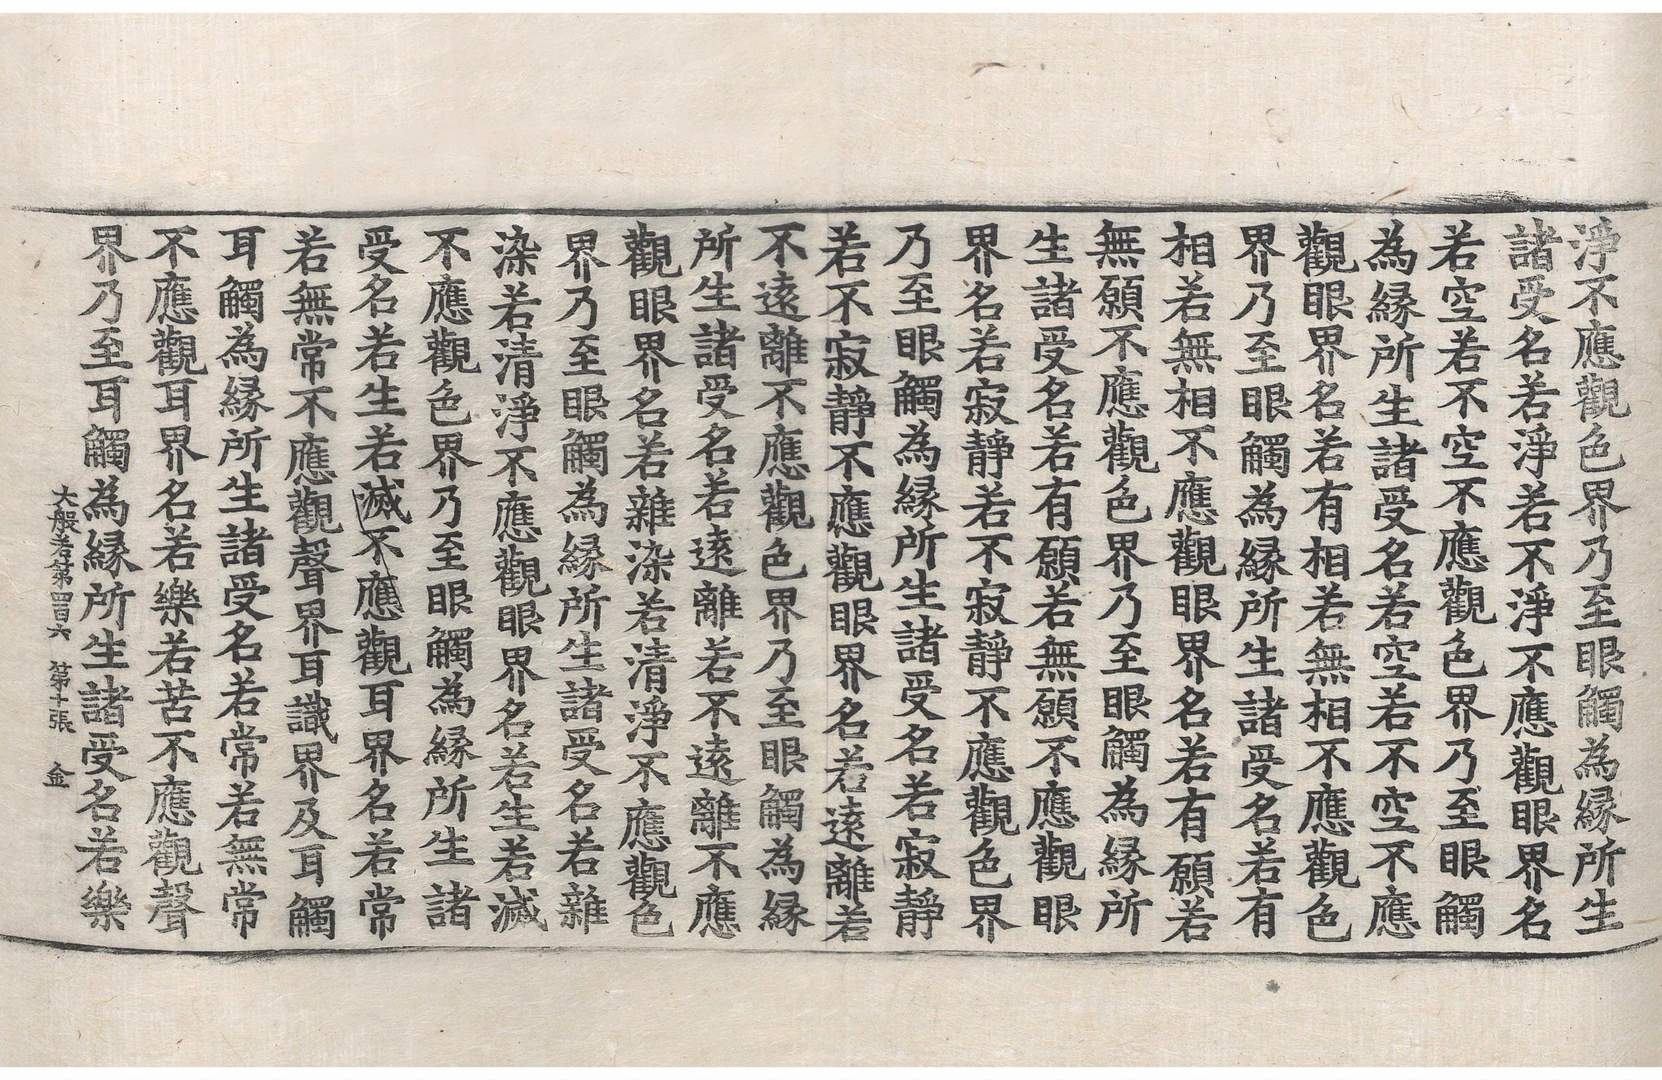 淨不應觀色界乃至眼觸為縁所生
諸受名若淨若不淨不應觀眼界名
若空若不空不應觀色界乃至眼觸
為縁所生諸受名若空若不空不應
觀眼界名若有相若無相不應觀色
界乃至眼觸為縁所生諸受名若有
相若無相不應觀眼界名若有願若
無願不應觀色界乃至眼觸為縁所
生諸受名若有願若無願不應觀眼
界名若寂靜若不寂靜不應觀色界
乃至眼觸為縁所生諸受名若寂靜
若不寂靜不應觀眼界名若遠離若
不遠離不應觀色界乃至眼觸為縁
所生諸受名若遠離若不遠離不應
觀眼界名若雜染若清淨不應觀色
界乃至眼觸為縁所生諸受名若雜
染若清淨不應觀眼界名若生若滅
不應觀色界乃至眼觸為縁所生諸
受名若生若滅不應觀耳界名若常
若無常不應觀聲界耳識界及耳觸
耳觸為縁所生諸受名若常若無常
不應觀耳界名若樂若苦不應觀聲
界乃至耳觸為縁所生諸受名若樂
大般若第四百六 第十張 金